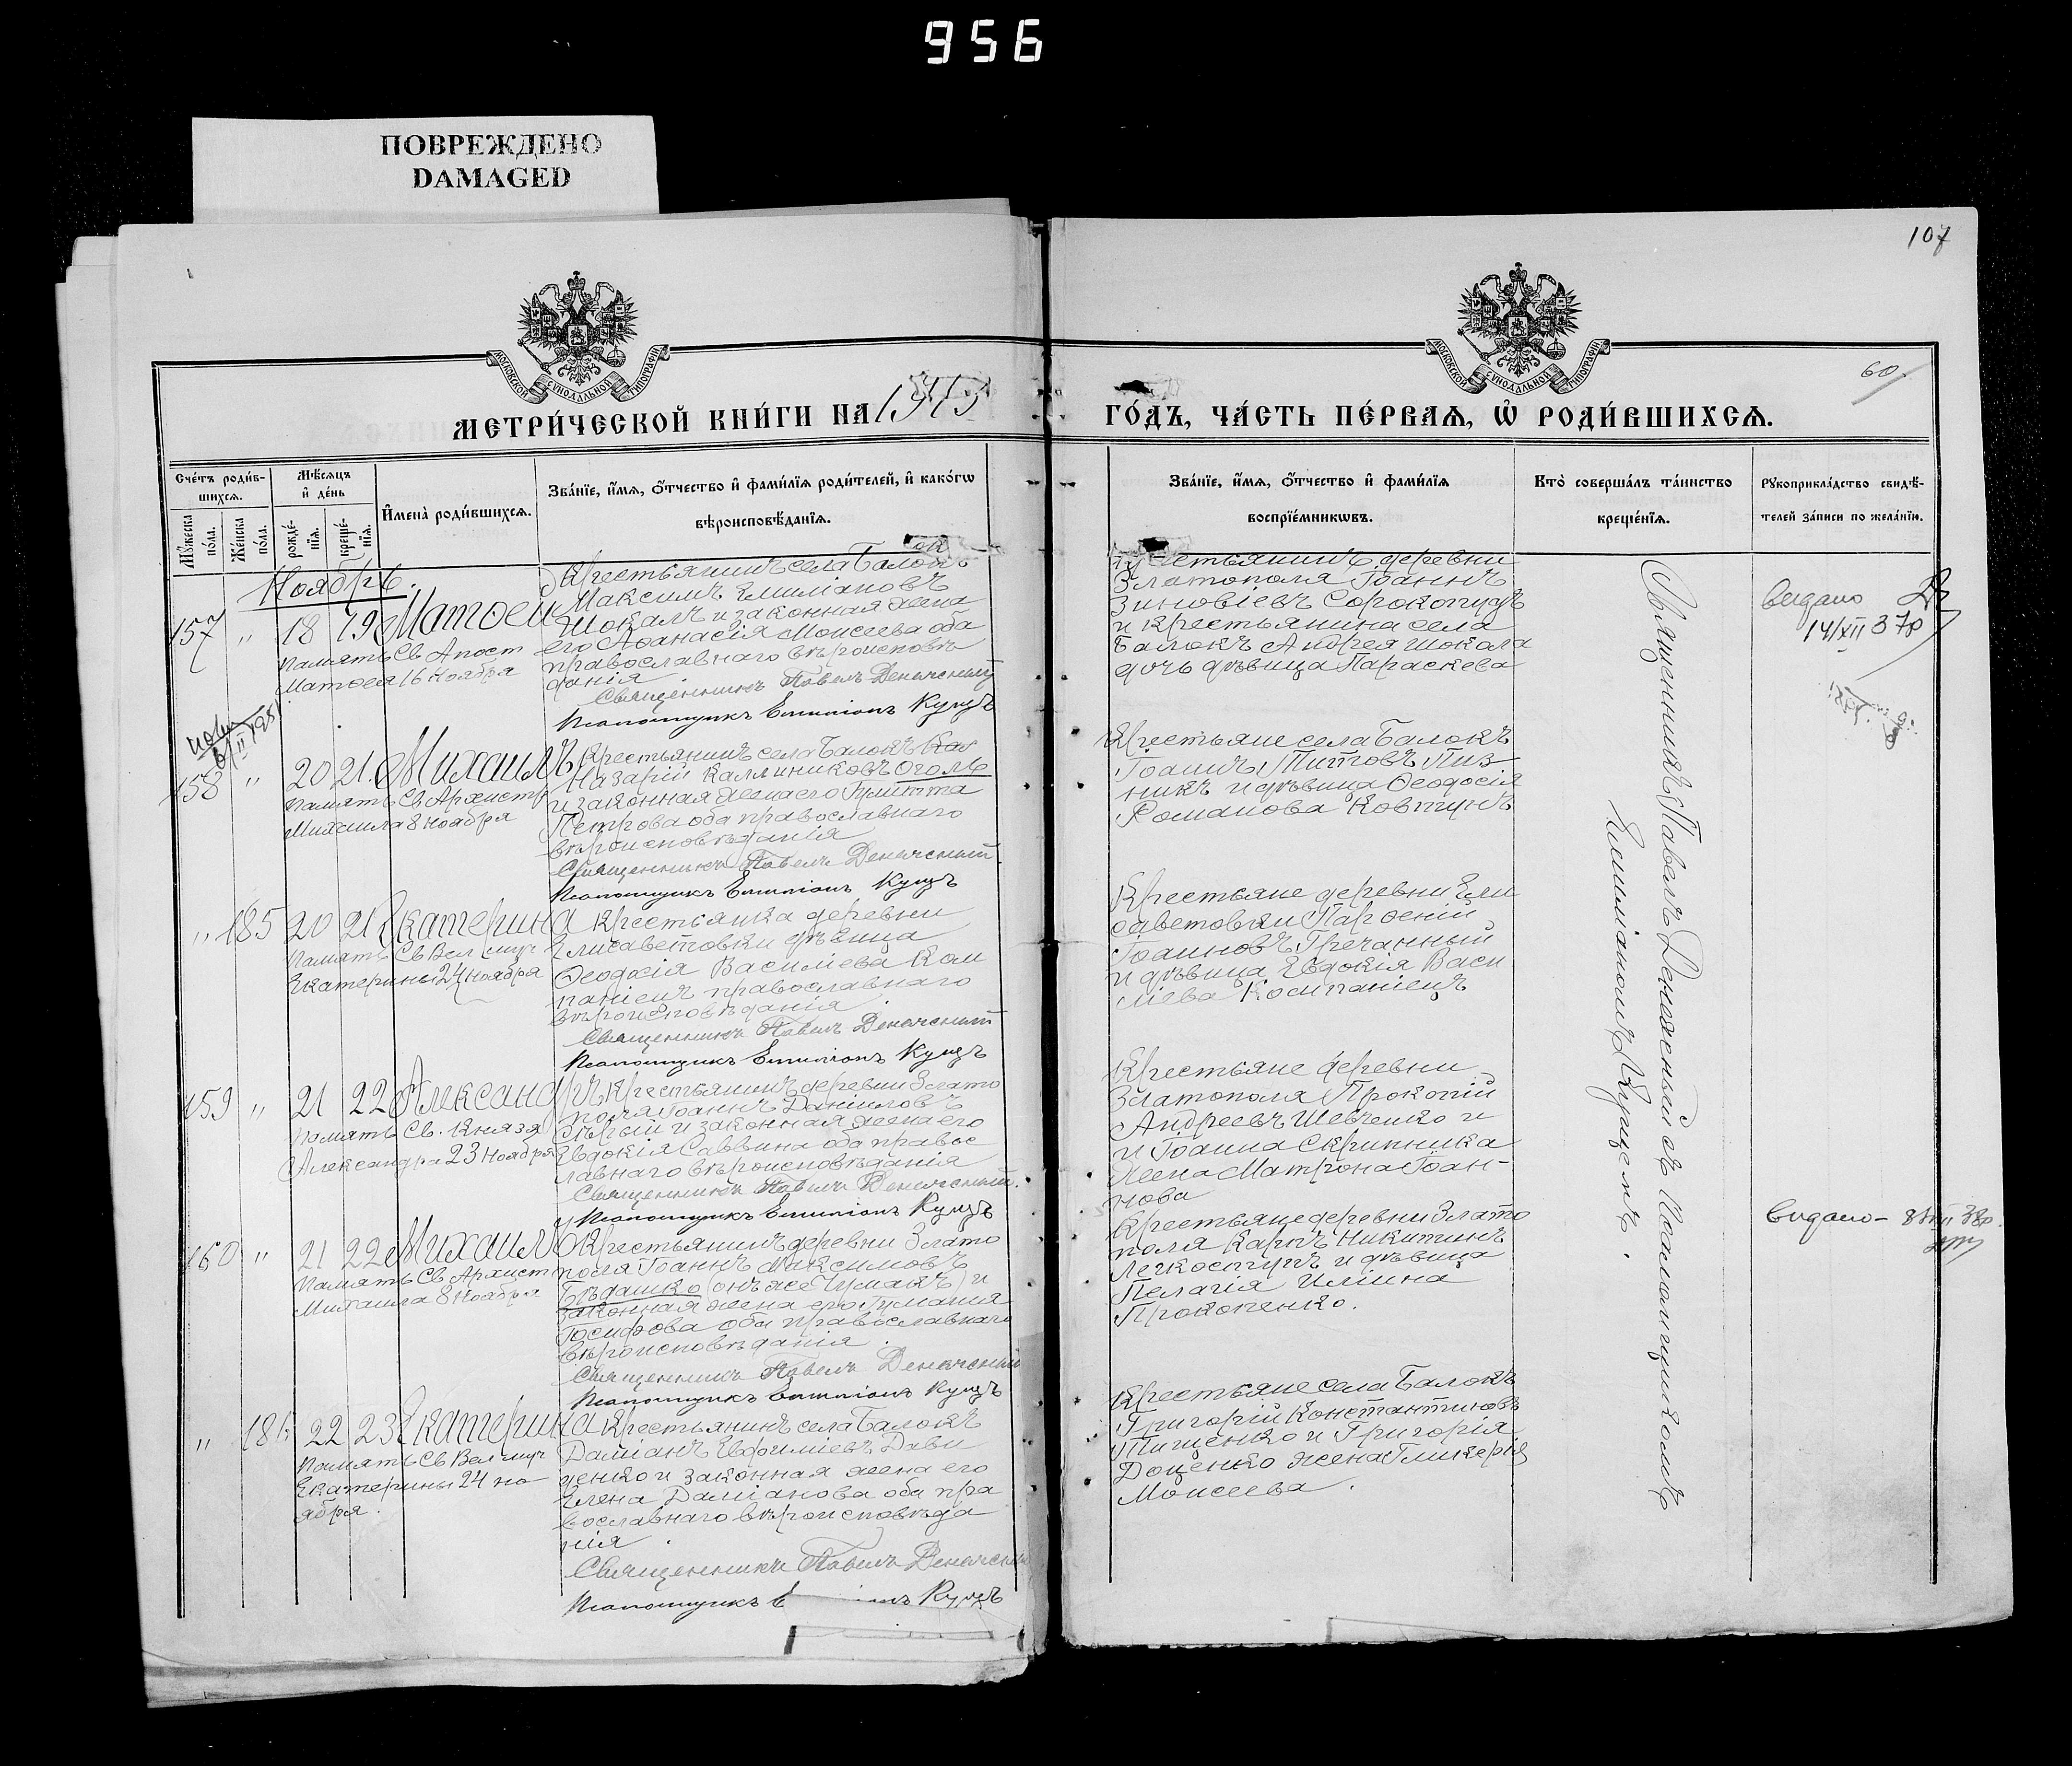 956
ПОВРЕЖДЕНО
DAMAGED
107
МОСКОВСКОЙ СѴНОДАЛЬНОЙ ТИПОГРАФІИ
МОСКОВСКОЙ СѴНОДАЛЬНОЙ ТИПОГРАФІИ
60
МЕТРИ́ЧЕСКОЙ КНИ́ГИ НА 1913
ГО́ДЪ, ЧА́СТЬ ПЕ́РВАѦ, Ѽ РОДИ́ВШИХСѦ.
Сче́тъ роди́в-
шихсѧ.
Мꙋ́жеска
по́ла.
Же́нска
по́ла.
Мѣ́сѧцъ
и҆ де́нь
рожде́-
нїѧ.
креще́-
нїѧ.
И҆мена̀ роди́вшихсѧ.
Зва́нїе, и҆́мѧ, ѻ҆́тчество и҆ фами́лїѧ роди́телей, и҆ како́гѡ
вѣроисповѣ́данїѧ.
Зва́нїе, и҆́мѧ, ѻ҆́тчество и҆ фами́лїѧ
воспрїе́мникѡвъ.
Кто̀ соверша́лъ та́инство
креще́нїѧ.
Рꙋкоприкла́дство свидѣ́-
телей за́писи по жела́нїю.
Ноябрь.
157 " 18 19 Матѳей
Память Св Апост
Матѳея 16 Ноября
Крестьянинъ села Балокъ
Максимъ Емиліановъ
Шокалъ и законная жена
его Аѳанасія Моисеева оба
православнаго вѣроисповѣ
данія
Священникъ Павелъ
Псаломщикъ Емиліанъ Куцъ
деревни
Златополя Іоаннъ
Зиновіевъ
и крестьянина села
Балокъ Андрея Шокала
дочь дѣвица Параскева
видано
14/XII 37р
158 " 20 21 Михаилъ
Память Св Архистр
Михаила 8 Ноября
Крестьянинъ села Балокъ
Назарій Каллиниковъ Оголь
и законная жена его Іулитта
Петрова оба православнаго
вѣроисповѣданія
Священникъ Павелъ
Псаломщикъ Емиліанъ Куцъ
Крестьяне села Балокъ
Іоаннъ Титовъ Пиз
никъ и дѣвица Ѳеодосія
Романова Ковтунъ
" 185 20 21 Екатерина
Память Св Вел муч
Екатерины 24 Ноября
Крестьянка деревни
Елисаветовки дѣвица
Ѳеодосія Василіева Ком
паніецъ православнаго
вѣроисповѣданія
Священникъ Павелъ
Псаломщикъ Емиліанъ Куцъ
Крестьяне деревни Ели
саветовки Парѳеній
Іоанновъ Гречанный
и дѣвица Евдокія Васи
ліева Компаніецъ
159 " 21 22 Александръ
Память Св. Князя
Александра 23 Ноября
Крестьянинъ деревни Злато
поля Іоаннъ Даніиловъ
Сѣрый и законная жена его
Евдокія Саввина оба правос
лавнаго вѣроисповѣданія
Священникъ Павелъ
Псаломщикъ Емиліанъ Куцъ
Крестьяне деревни
Златополя Прокопій
Андреевъ Шевченко и
и Іоанна Скрипника
жена Матрона Іоан-
нова
160 " 21 22 Михаилъ
Память Св Архист
Михаила 8 Ноября
Крестьянинъ деревни Злато
поля Іоаннъ Максимовъ
Бѣдашко (онъ же Чумакъ) и
законная жена его Іуліанія
Іосифова оба православнаго
вѣроисповѣданія
Священникъ Павелъ
Псаломщикъ Емиліанъ Куцъ
Крестьяне деревни Злато
поля Карпъ Никитинъ
Легкоступъ и дѣвица
Пелагія Иліина
Прокопенко.
видано
" 22 23 Екатерина
Память Св Вел муч
Екатерины 24 но
ября.
Крестьянинъ села Балокъ
Даміанъ Евфиміевъ Дави
денко и законная жена его
Елена Даміанова оба пра
вославнаго вѣроисповѣда
нія
Священникъ Павелъ
Псаломщикъ Куцъ
Крестьяне села Балокъ
Григорій Константиновъ
Тищенко и Григорія
Доценко жена Гликерія
Моисеева.
Священникъ Павелъ съ Псаломщикомъ
Емиліаномъ Куцемъ.